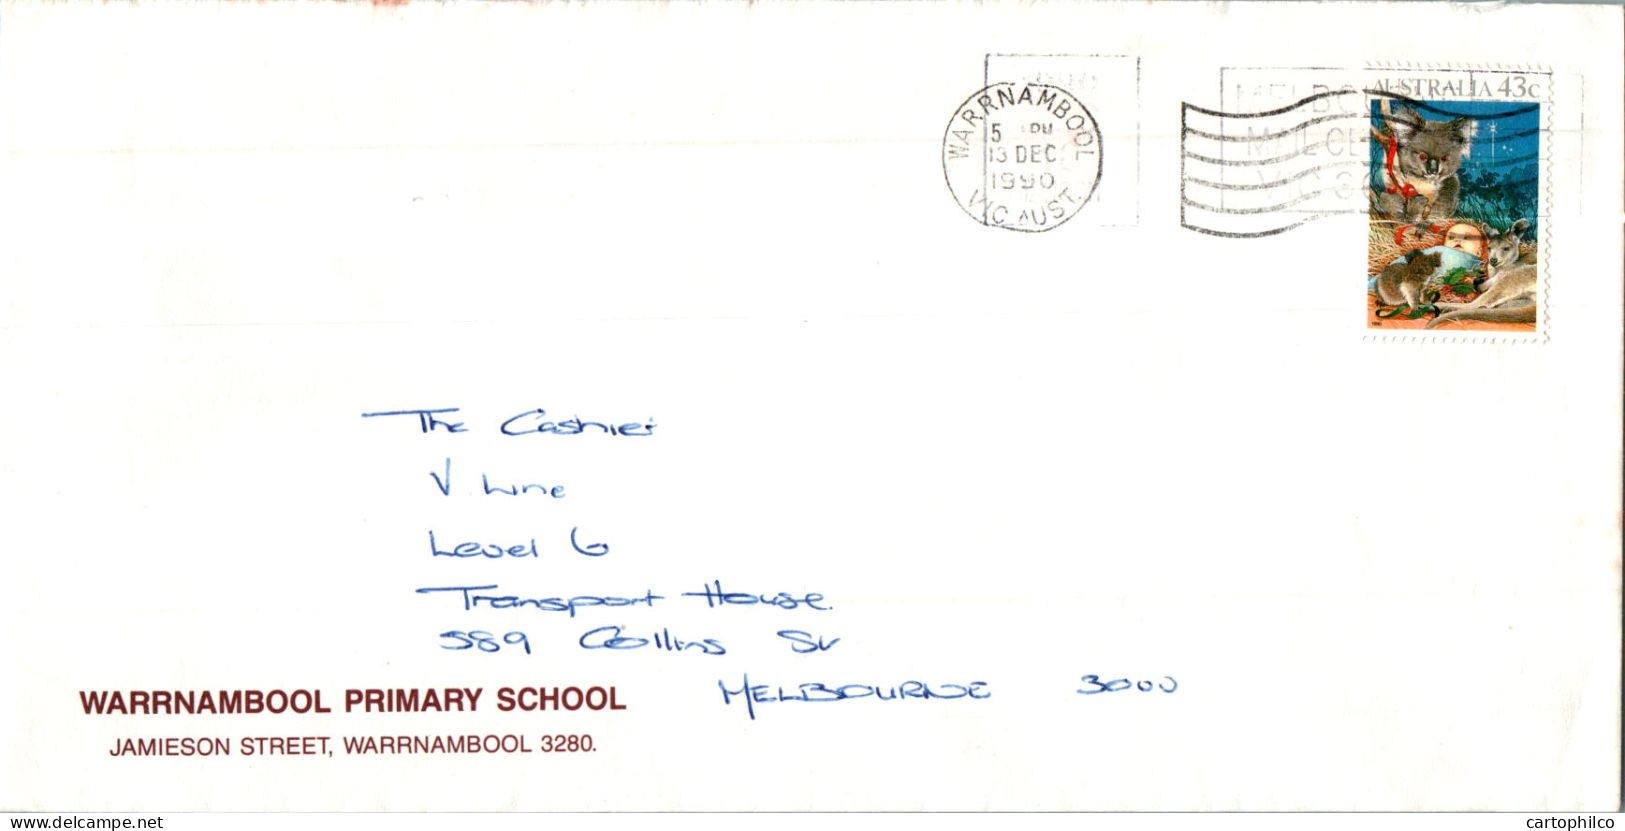 WARRNAMBOOL
5 PM
13 DEC
1990
VIC AUST.
MELBO
MAIL CE
VIC 3
AUSTRALIA 43c
1990
The Cashier
V Line
Level 6
Transport House
589 Collins St
MELBOURNE 3000
WARRNAMBOOL PRIMARY SCHOOL
JAMIESON STREET, WARRNAMBOOL 3280.
www.delcampe.net
cartophilco